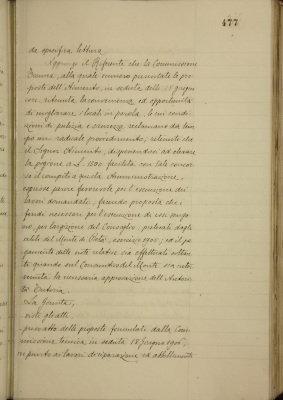 477
da specifica lettera
Aggiunge il Riferente che la Commissione
Tecnica, alla quale vennero presentate le pro-
poste dell'Armento, in seduta delli 18 giugno
ritenuta la convenienza ed opportunità
di migliorare i locali in parola, le cui condi-
zioni di pulizia e decenza reclamano da tem-
po un radicale provvedimento; ritenuto che
il Signor Armento, disponendosi ad elevare
la pigione a £ 1300
sa il compito a questa Amministrazione,
espresse parere favorevole per l'esecuzione dei
lavori domandati, facendo proposta che i
fondi necessari per l'esecuzione di essi venga-
no, per
esercizio 1906; ed il pa-
gamento delle note relative sia effettuato soltan-
to quando sul Consuntivo del Monte sia inter-
venuta la necessaria approvazione dell'Autori-
tà Tutoria.
La Giunta,
visti gli atti,
preso atto delle proposte formulate dalla Com-
missione tecnica in seduta 18 Giugno 1906,
in punto ai lavori di riparazione ed abbellimento